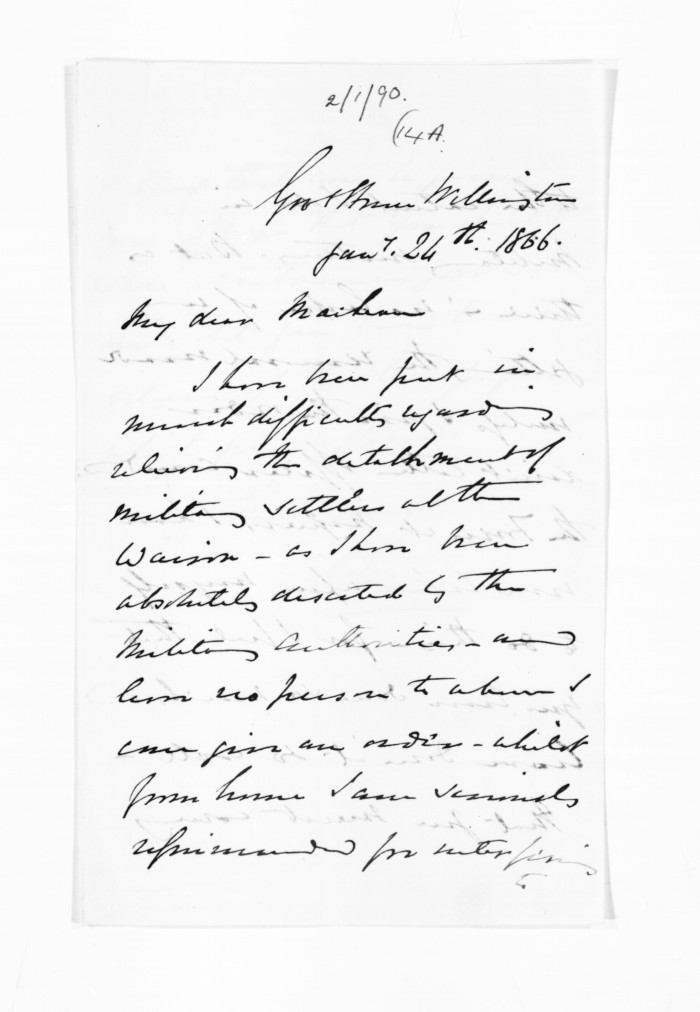 2/1/90.
(14A.
Govt House Wellington
Jany. 24th. 1866.
My dear Maclean
I have been put in
much difficulty regarding
relieving the detachment of
Military settlers at the
Wairoa - as I have been
absolutely deserted by the
Military Authorities - and
have no person to whom I
can give an order - whilst
from home I am seriously
reprimanded for interfering